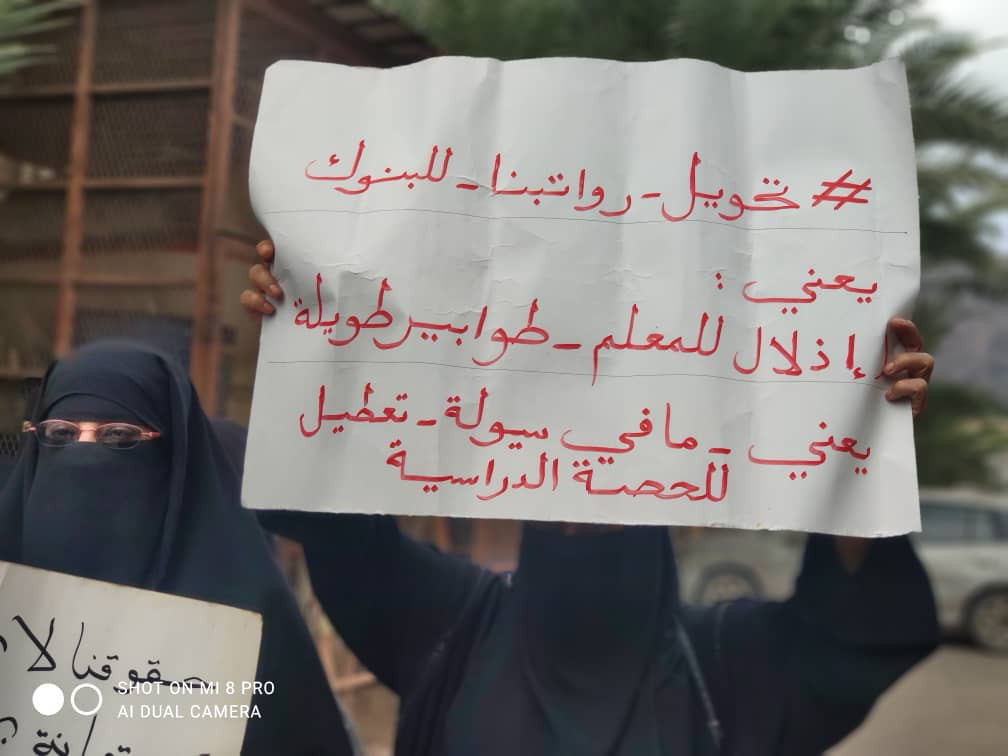 # تحويل - رواتبنا - للبنوك
يعني :
إذلال للمعلم - طوابير طويلة
يعني - مافي سيولة - تعطيل
للحصة الدراسية
حقوقنا لا
SHOT ON MI 8 PRO
AI DUAL CAMERA